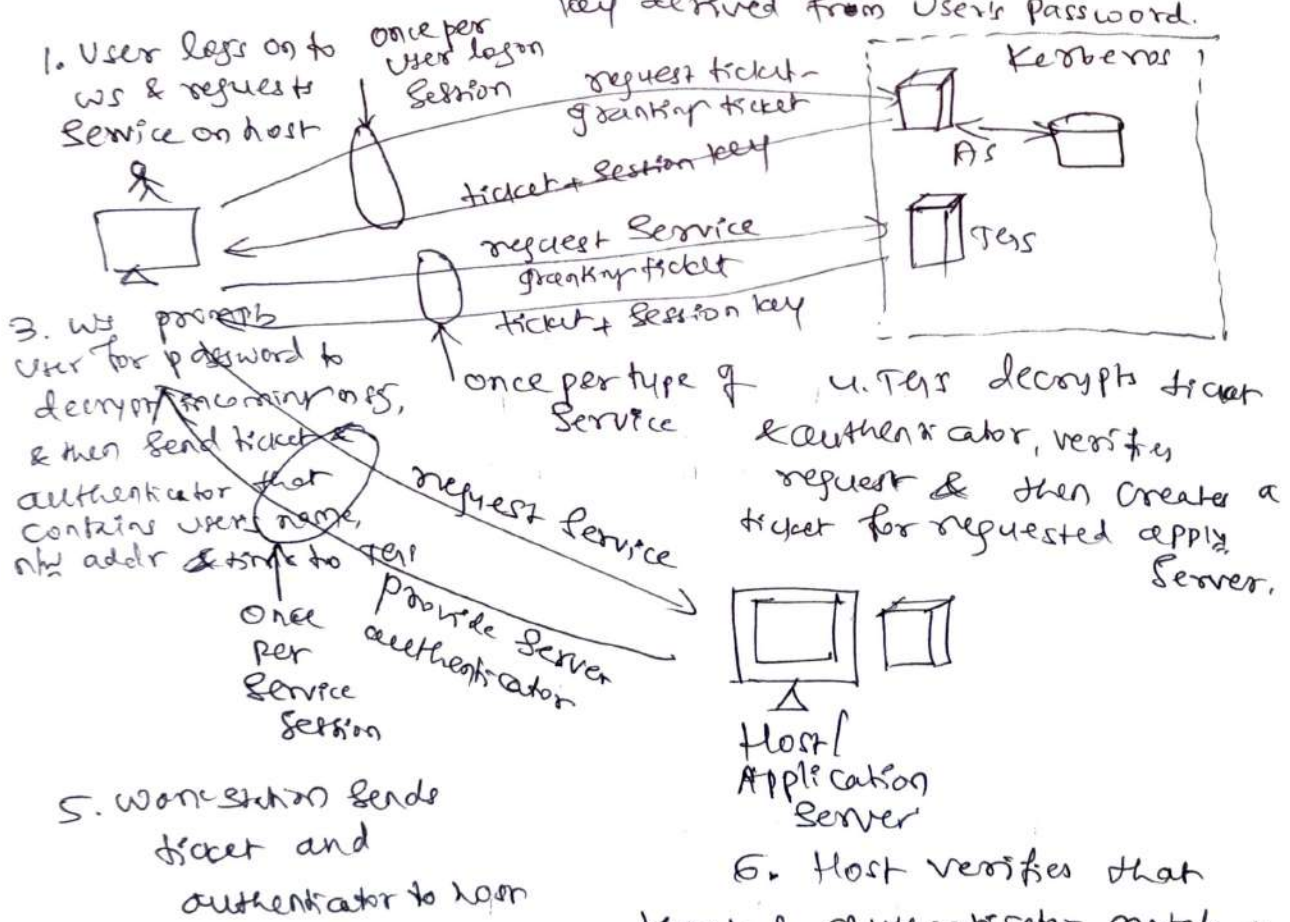 key derived from User's Password.
1. User logs on to
ws & requests
Service on host
once per
user logon
Session
request ticket-
granting ticket
ticket + Session key
Kerberos
AS
request Service
granting ticket
ticket + Session key
TGS
3. ws prompts
user for password to
decrypt incoming msg,
& then send ticket &
authenticator that
contains users name,
n/w addr & time to TGS
once per type of
Service
4. TGS decrypts ticket
& authenticator, verifies
request & then creates a
ticket for requested appln
Server.
request Service
Provide Server
authenticator
Once
per
Service
Session
Host/
Application
Server
5. Workstation Sends
ticket and
authenticator to host
6. Host verifies that